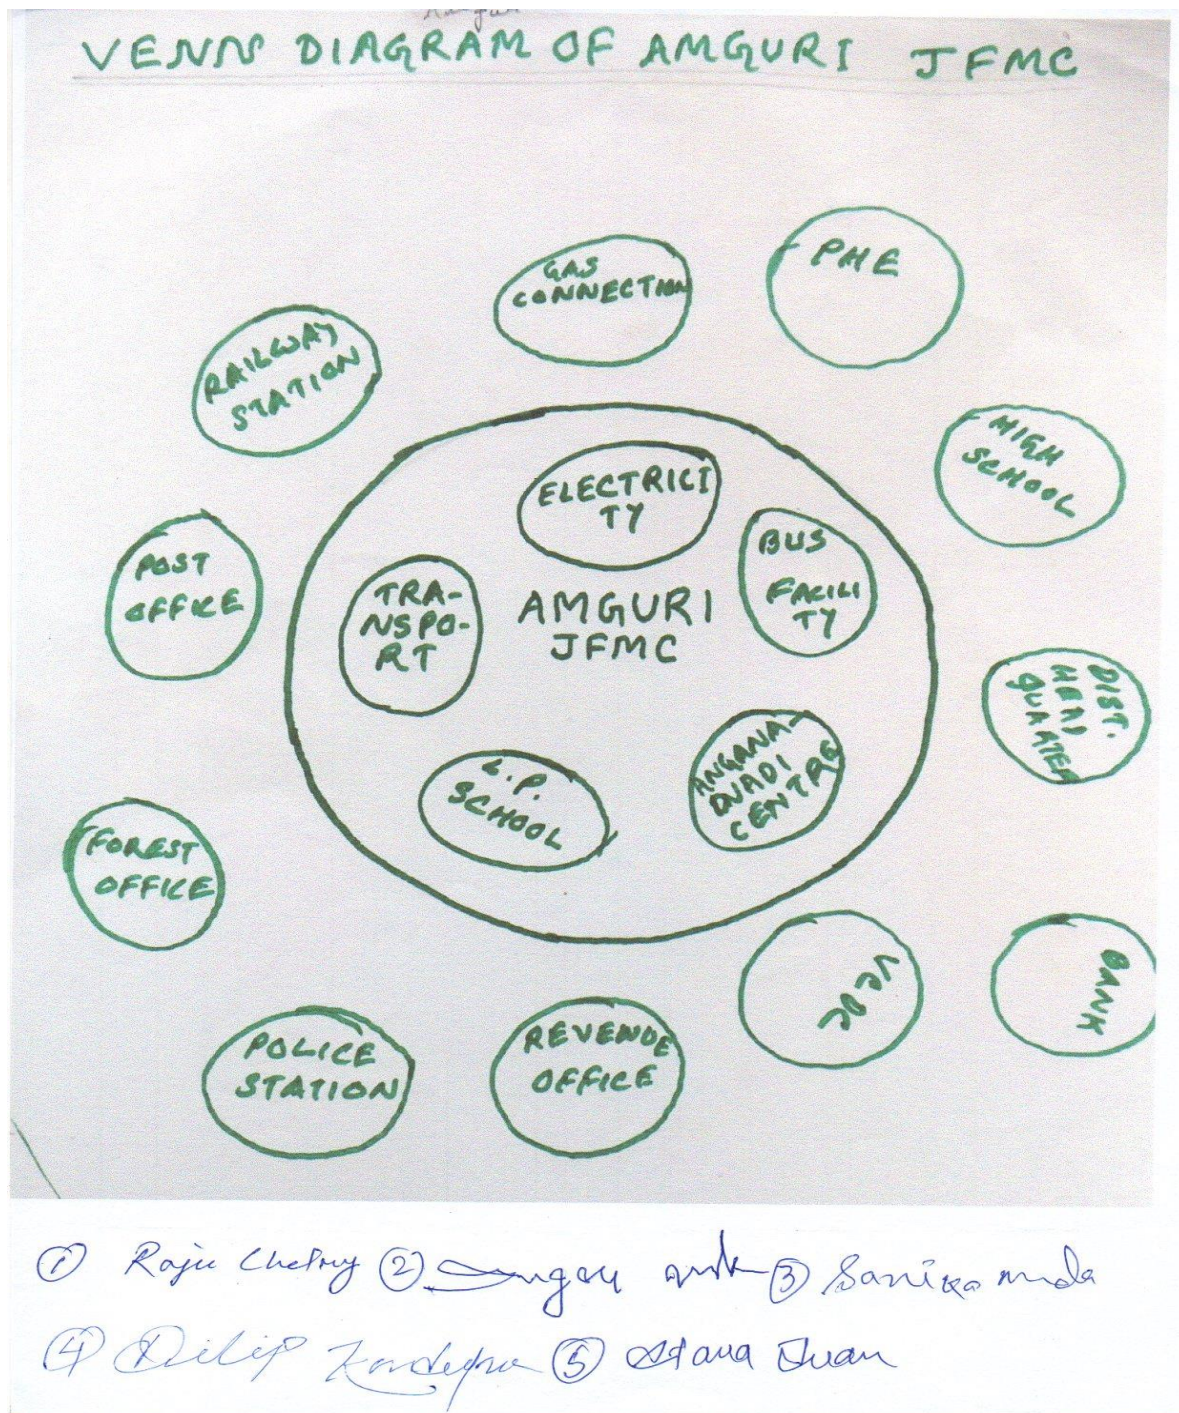 VENN DIAGRAM OF AMGURI JFMC
GAS
CONNECTION
PHE
RAILWAY
STATION
HIGH
SCHOOL
ELECTRICI
TY
BUS
FACILI
TY
POST
OFFICE
TRA-
NSPO-
RT
AMGURI
JFMC
DIST.
HEAD
QUARTER
L.P.
SCHOOL
ANGANA-
DWADI
CENTRE
FOREST
OFFICE
VCDC
BANK
POLICE
STATION
REVENUE
OFFICE
① Raju Chetry ② ③
④ Dilip ⑤